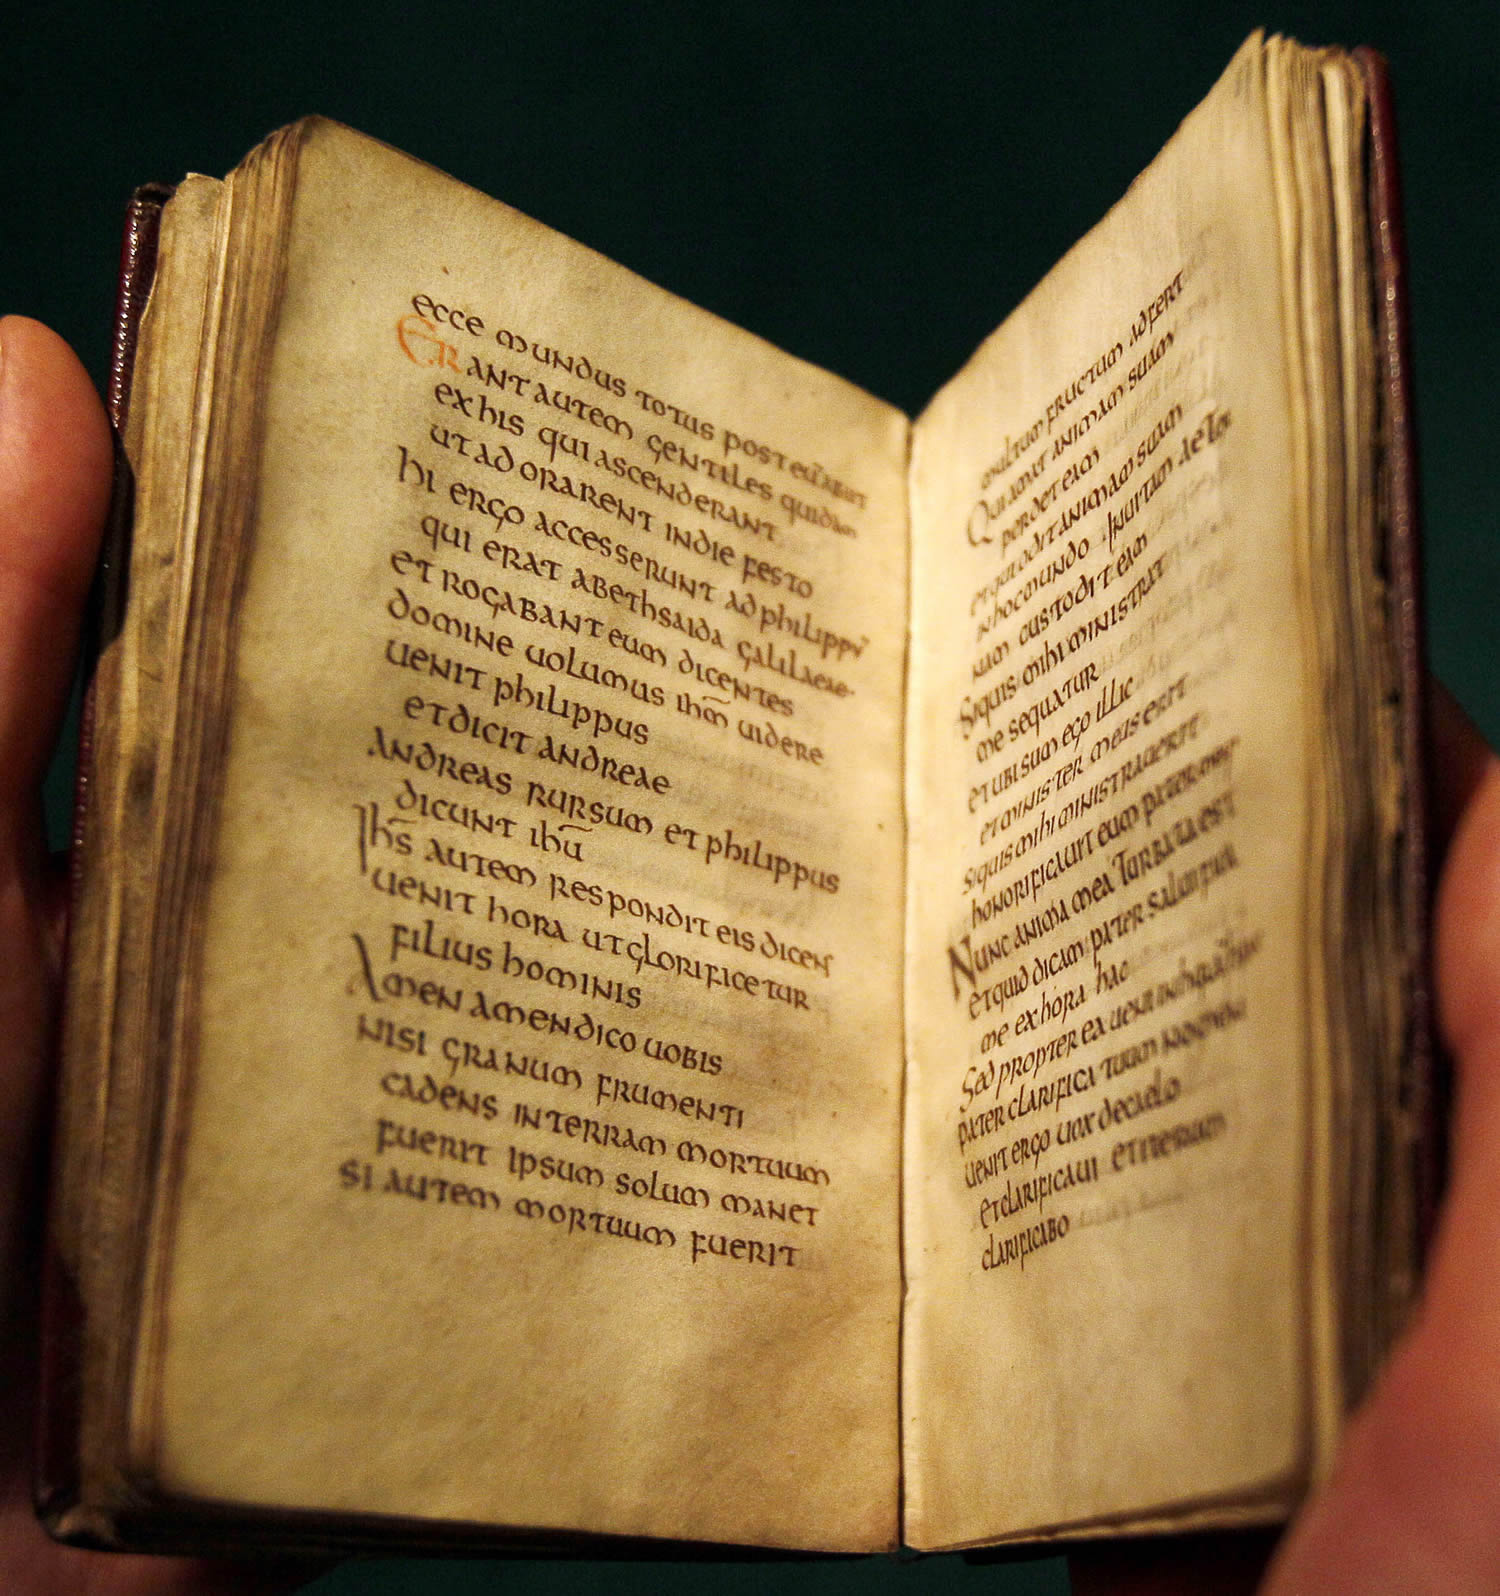 ecce mundus totus post eum abiit
Erant autem gentiles quidam
ex his qui ascenderant
ut adorarent in die festo
hi ergo accesserunt ad philippū
qui erat a bethsaida galilaeae·
et rogabant eum dicentes
domine uolumus ihm̄ uidere
uenit philippus
et dicit andreae
Andreas rursum et philippus
dicunt ihū
Ihs̄ autem respondit eis dicens
uenit hora ut glorificetur
filius hominis
Amen amen dico uobis
nisi granum frumenti
cadens in terram mortuum
fuerit ipsum solum manet
si autem mortuum fuerit
multum fructum adfert
Qui amat animam suam
perdet eam
et qui odit animam suam
in hoc mundo · In uitam aeter
nam custodit eam
Si quis mihi ministrat
me sequatur
et ubi sum ego illic
et minister meus erit
si quis mihi ministrauerit
honorificauit eum pater meus
Nunc anima mea turbata est
et quid dicam pater salui fica
me ex hora hac
Sed propterea ueni in horam hanc
pater clarifica tuum nomen
uenit ergo uox de caelo
et clarificaui et iterum
clarificabo